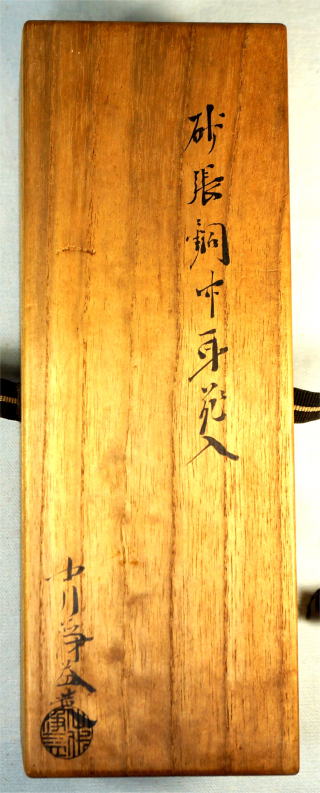 砂張銅中耳花入
中川浄益造